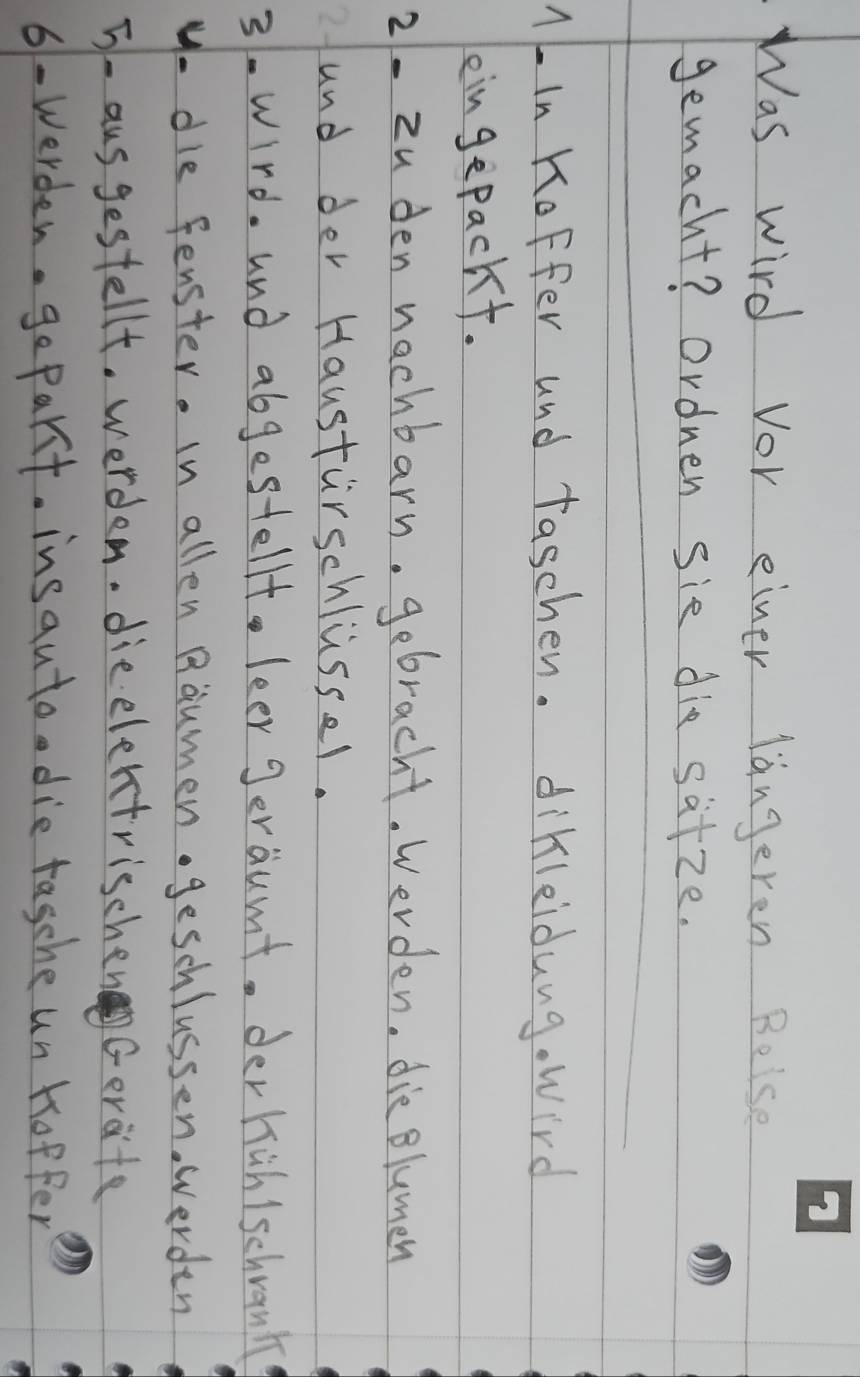 Was wird vor einer längeren Reise
gemacht? Ordnen sie die sätze.
1 - In Koffer und taschen. dikleidung. wird
eingepackt.
2 - zu den nachbarn. gebracht. werden. die Blumen
und der Haustürschlüssel.
3 - wird. und abgestellt. leer geräumt. der Kühlschrank
4 - die fenster. in allen Räumen. geschlussen. werden
5 - ausgestellt. werden. die elektrischen Geräte
6 - werden. gepakt. insauto. die tasche un Koffer